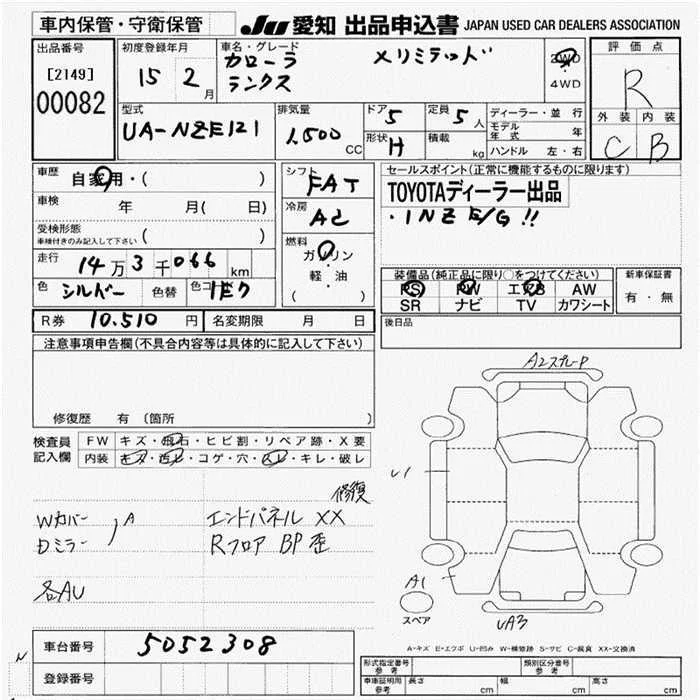 車内保管・守衛保管
JU 愛知 出品申込書 JAPAN USED CAR DEALERS ASSOCIATION
出品番号
[2149]
00082
初度登録年月
15 2 月
車名・グレード
カローラ
ランクス
Xリミテッド
2WD
4WD
評価点
R
外装 内装
C B
型式
UA-NZE121
排気量
1,500 CC
ドア 5
形状 H
定員 5 人
積載 kg
ディーラー・並行
モデル年式 年
ハンドル 左・右
車歴
自家用・( )
車検
年 月( 日)
受検形態
車検付きのみ記入して下さい ( )
走行
14万3千066 km
色 シルバー 色替 色コ 1E7
シフト
FAT
冷房
AC
燃料
ガソリン
軽・油
( )
セールスポイント(正常に機能するものに限ります)
TOYOTAディーラー出品
・1NZ E/G!!
装備品(純正品に限り○をつけてください)
PS PW エアB AW
SR ナビ TV カワシート
新車保証書
有・無
R券 10.510 円 名変期限 月 日
後日品
注意事項申告欄(不具合内容等は具体的に記入して下さい)
修復歴 有 〔箇所 〕
検査員
記入欄
FW キズ・飛石・ヒビ割・リペア跡・X要
内装 キズ・汚レ・コゲ・穴・スレ・キレ・破レ
修復
Wカバー
Dミラー
A
エンドパネル XX
Rフロア BP歪
各AU
A2スプレーP
U1
A1
スペア
UA3
A-キズ E-エクボ U-凹み W-補修跡 S-サビ C-腐食 XX-交換済
車台番号 5052308
登録番号
型式指定番号
参考
類別区分番号
参考
車庫証明用
参考
長さ cm 幅 cm 高さ cm